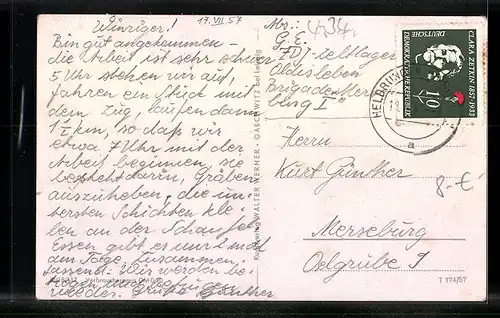 17. VII. 57
Winziger!
Bin gut angekommen –
die Arbeit ist sehr schwer
5 Uhr stehen wir auf,
fahren ein Stück mit
dem Zug, laufen dann
1½ km, so daß wir
etwa 7 Uhr mit der
Arbeit beginnen, sie
besteht darin, Gräben
auszuheben, die
Schichten
ben an der Schaufel.
Essen gibt es nur 2 mal
am Tage. Zusammen-
fassend: Wir werden
Grüße Günther
Abs.:
G. E.
FDJ-Zeltlager
Oldisleben
Brigade "Merse-
burg I"
434.
DEUTSCHE
DEMOKRATISCHE REPUBLIK
CLARA ZETKIN 1857-1933
10
HELDRUNGEN
a
WALTER WERNER · GASCHWITZ bei Leipzig
Herrn
Kurt Günther
8.-€
Merseburg
Oelgrube 9
T 174/57